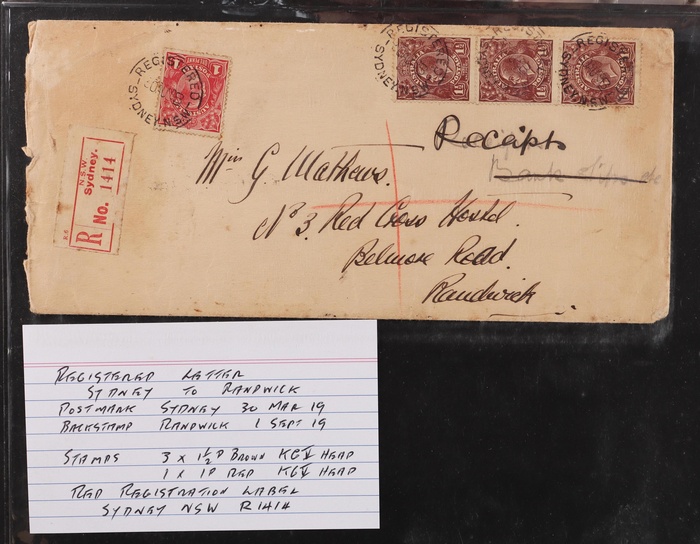 REGISTERED
SYDNEY N.S.W
REGISTERED
SYDNEY N.S.W
REGISTERED
SYDNEY N.S.W
Receipts
Bank
N.S.W
Sydney.
R No. 1414
R 6
Miss G. Mathews.
No 3. Red Cross Hostel.
Belmore Road.
Randwick.
REGISTERED LETTER
SYDNEY TO RANDWICK
POSTMARK SYDNEY 30 MAR 19
BACKSTAMP RANDWICK 1 SEPT 19
STAMPS 3 x 1½D BROWN KGV HEAD
1 x 1D RED KGV HEAD
RED REGISTRATION LABEL
SYDNEY NSW R1414